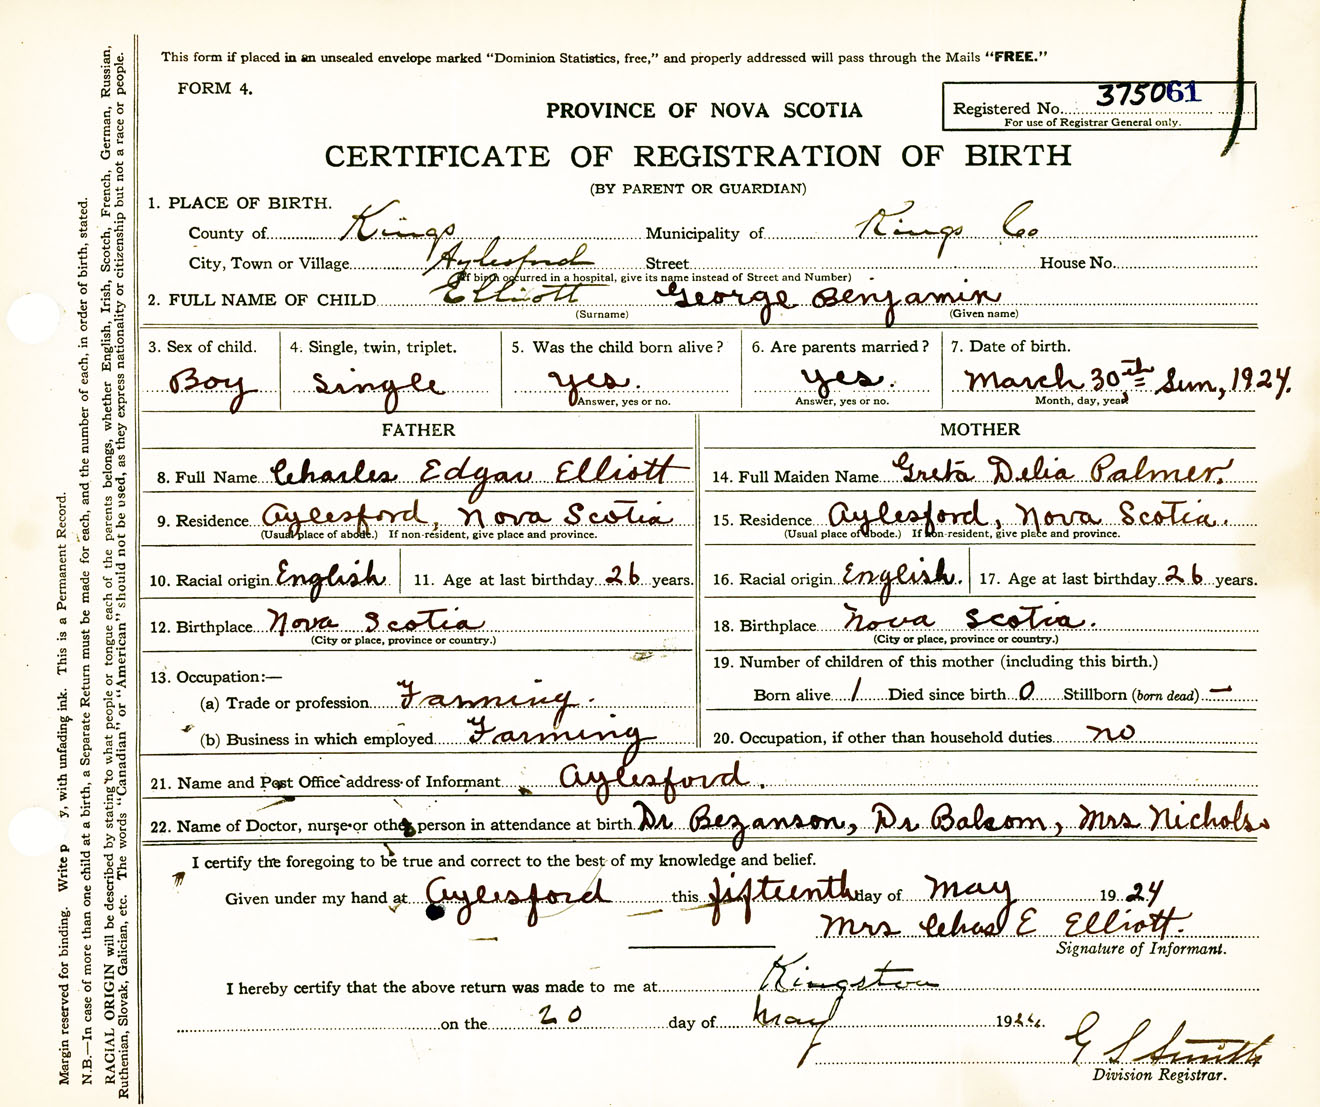 This form if placed in an unsealed envelope marked "Dominion Statistics, free," and properly addressed will pass through the Mails "FREE."
FORM 4.
Registered No. 375061
For use of Registrar General only.
PROVINCE OF NOVA SCOTIA
CERTIFICATE OF REGISTRATION OF BIRTH
(BY PARENT OR GUARDIAN)
1. PLACE OF BIRTH.
County of Kings Municipality of Kings Co
City, Town or Village Aylesford Street House No.
(If birth occurred in a hospital, give its name instead of Street and Number)
2. FULL NAME OF CHILD Elliott George Benjamin
(Surname) (Given name)
3. Sex of child. 4. Single, twin, triplet. 5. Was the child born alive? 6. Are parents married? 7. Date of birth.
Boy Single yes. yes. March 30th Sun, 1924.
Answer, yes or no. Answer, yes or no. Month, day, year
FATHER MOTHER
8. Full Name Charles Edgar Elliott 14. Full Maiden Name Greta Delia Palmer.
9. Residence Aylesford, Nova Scotia 15. Residence Aylesford, Nova Scotia.
(Usual place of abode.) If non-resident, give place and province. (Usual place of abode.) If non-resident, give place and province.
10. Racial origin English 11. Age at last birthday 26 years. 16. Racial origin English. 17. Age at last birthday 26 years.
12. Birthplace Nova Scotia 18. Birthplace Nova Scotia.
(City or place, province or country.) (City or place, province or country.)
13. Occupation:— 19. Number of children of this mother (including this birth.)
(a) Trade or profession Farming. Born alive 1 Died since birth 0 Stillborn (born dead) —
(b) Business in which employed Farming 20. Occupation, if other than household duties no
21. Name and Post Office address of Informant Aylesford.
22. Name of Doctor, nurse or other person in attendance at birth Dr Bezanson, Dr Balcom, Mrs Nichols.
I certify the foregoing to be true and correct to the best of my knowledge and belief.
Given under my hand at Aylesford this fifteenth day of May 1924
Mrs Chas E Elliott.
Signature of Informant.
I hereby certify that the above return was made to me at Kingston
on the 20 day of May 1924.
G S Smith
Division Registrar.
Margin reserved for binding. Write p y, with unfading ink. This is a Permanent Record.
N.B.—In case of more than one child at a birth, a Separate Return must be made for each, and the number of each, in order of birth, stated.
RACIAL ORIGIN will be described by stating to what people or tongue each of the parents belongs, whether English, Irish, Scotch, French, German, Russian,
Ruthenian, Slovak, Galician, etc. The words "Canadian" or "American" should not be used, as they express nationality or citizenship but not a race or people.